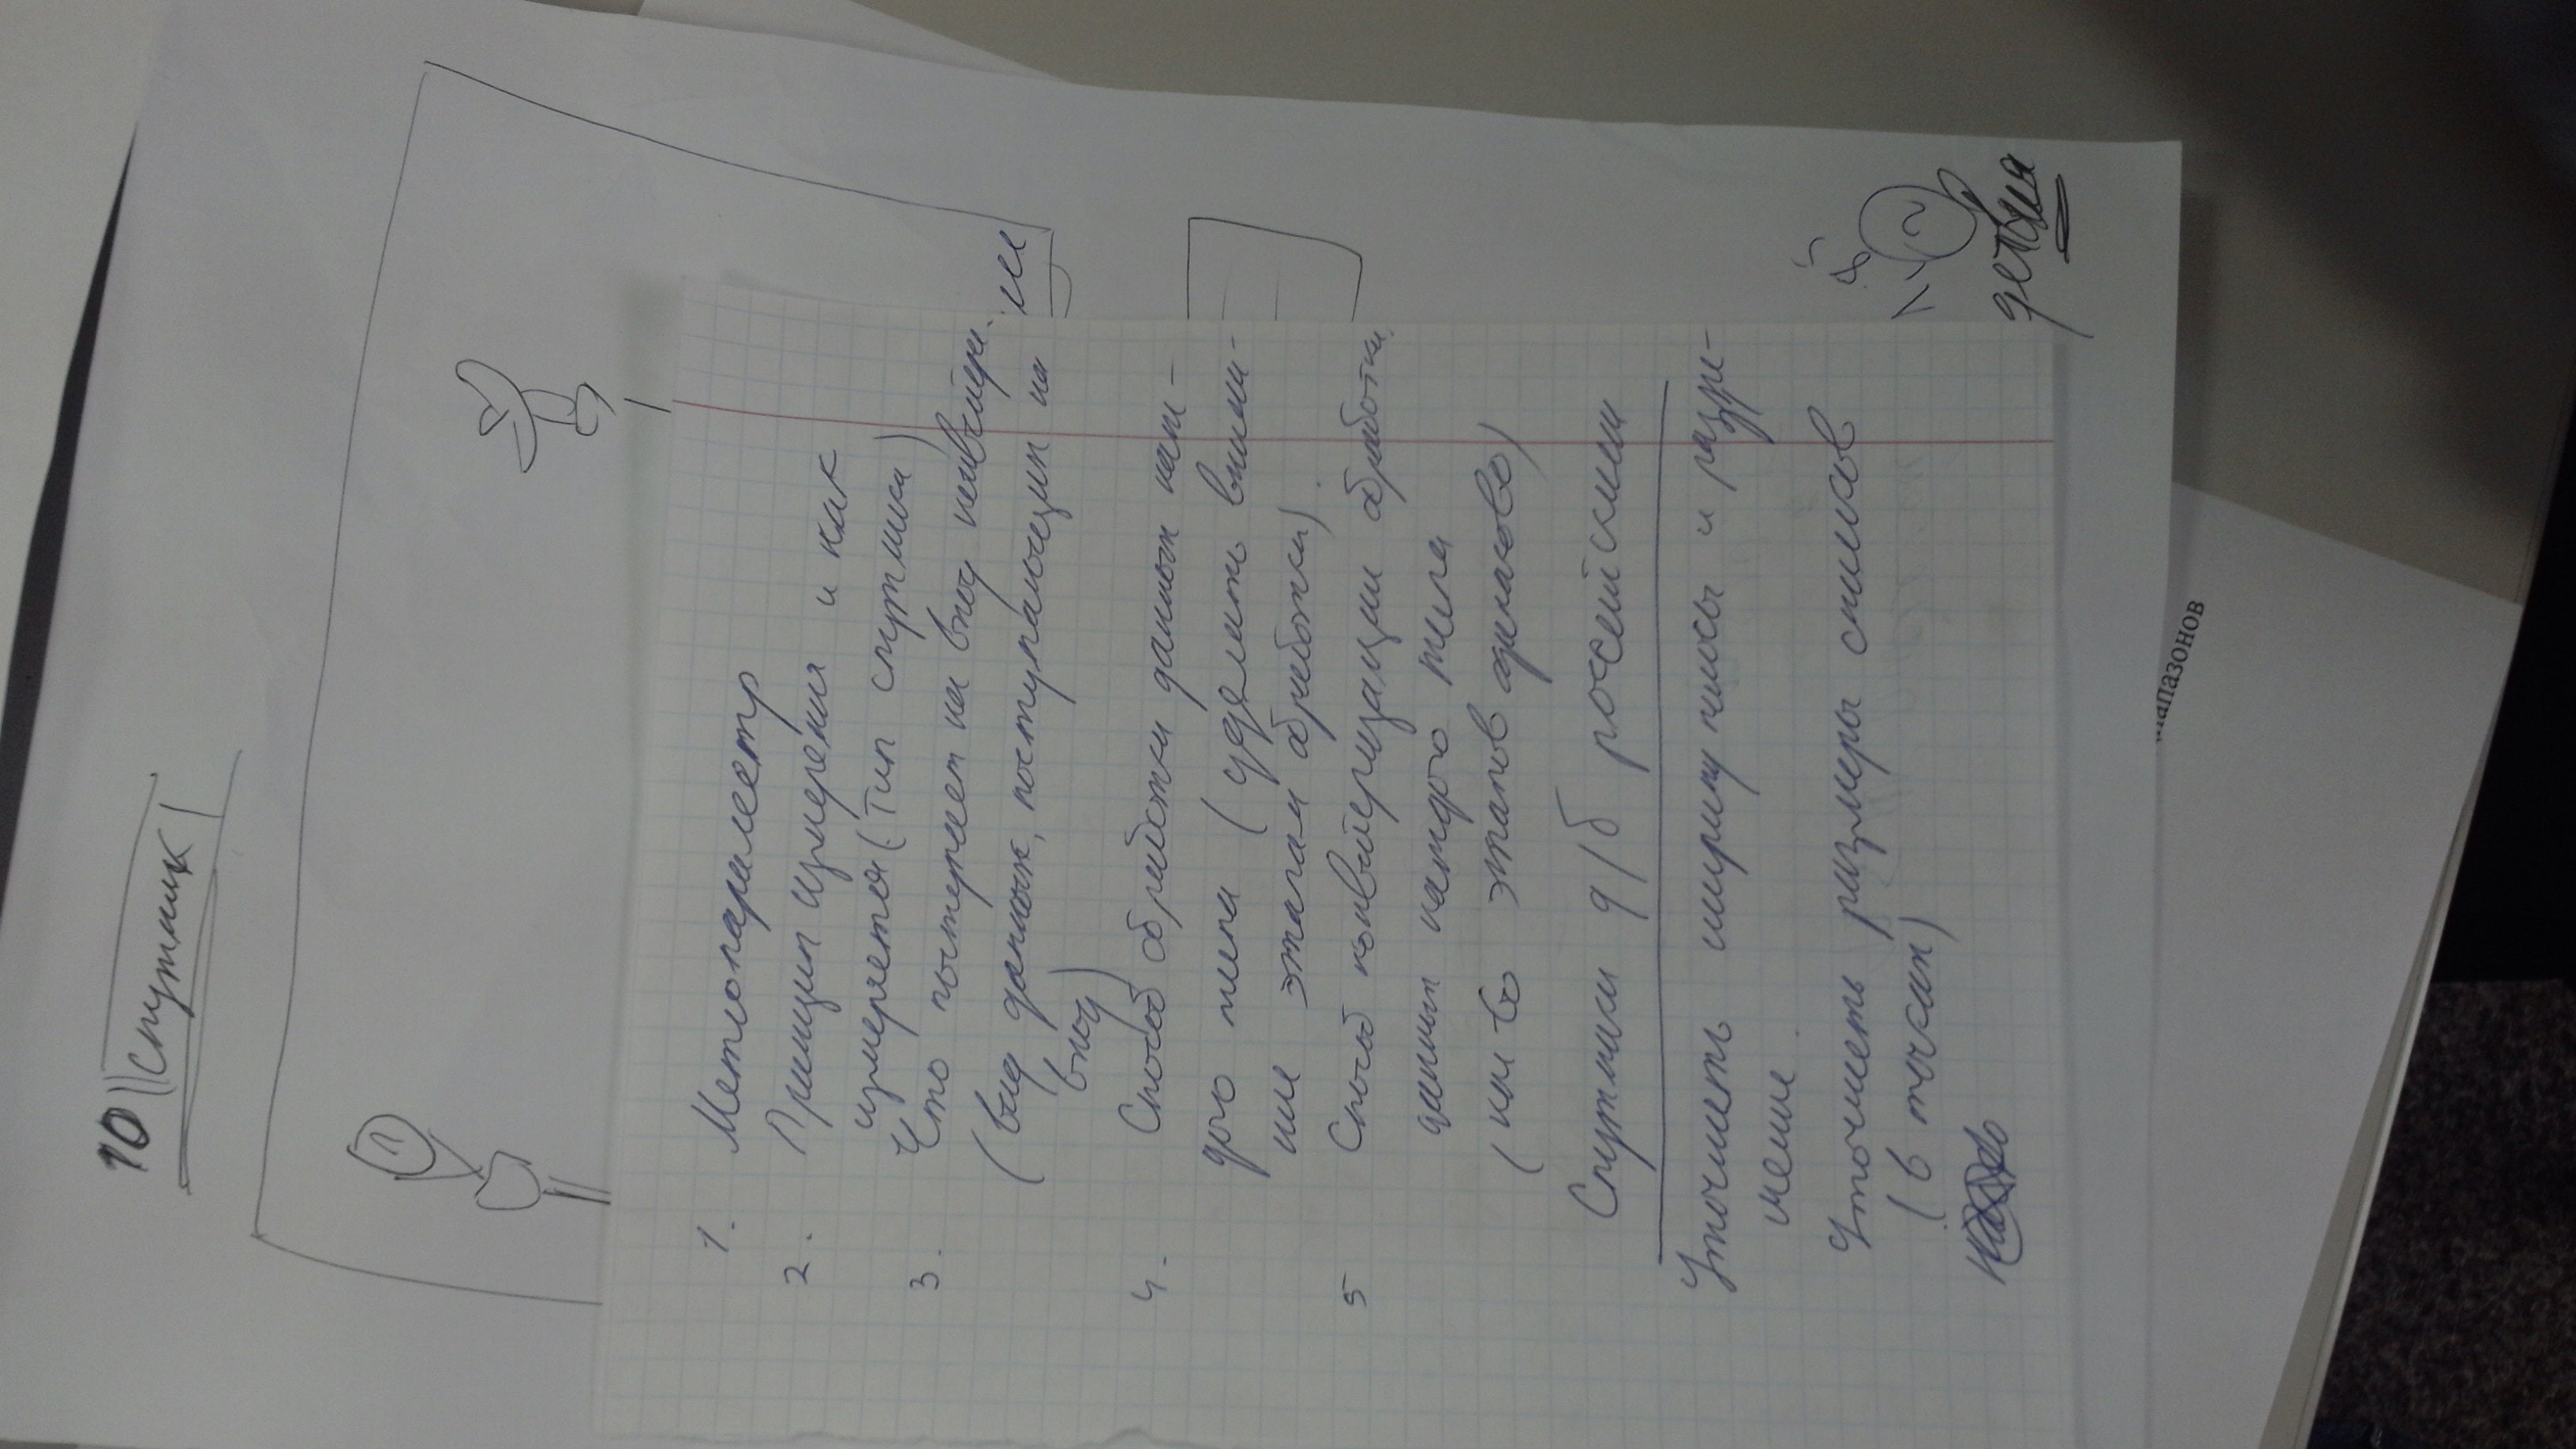 ПО "Спутник"
1. Метеопараметр
2. Принцип измерения и как
измеряется (Тип спутника)
3. Что поступает на вход конвейера.
(вид данных, поступающих на
вход)
4. Способ обработки данных каж-
дого типа (уделить внима-
ние этапам обработки).
5 Способ конвейеризации обработки
данных каждого типа
(кол-во этапов одинаково)
Спутники д/б российскими
Уточнить ширину полосы и разре-
шение.
Уточнить размеры снимков
(в точках)
апазонов